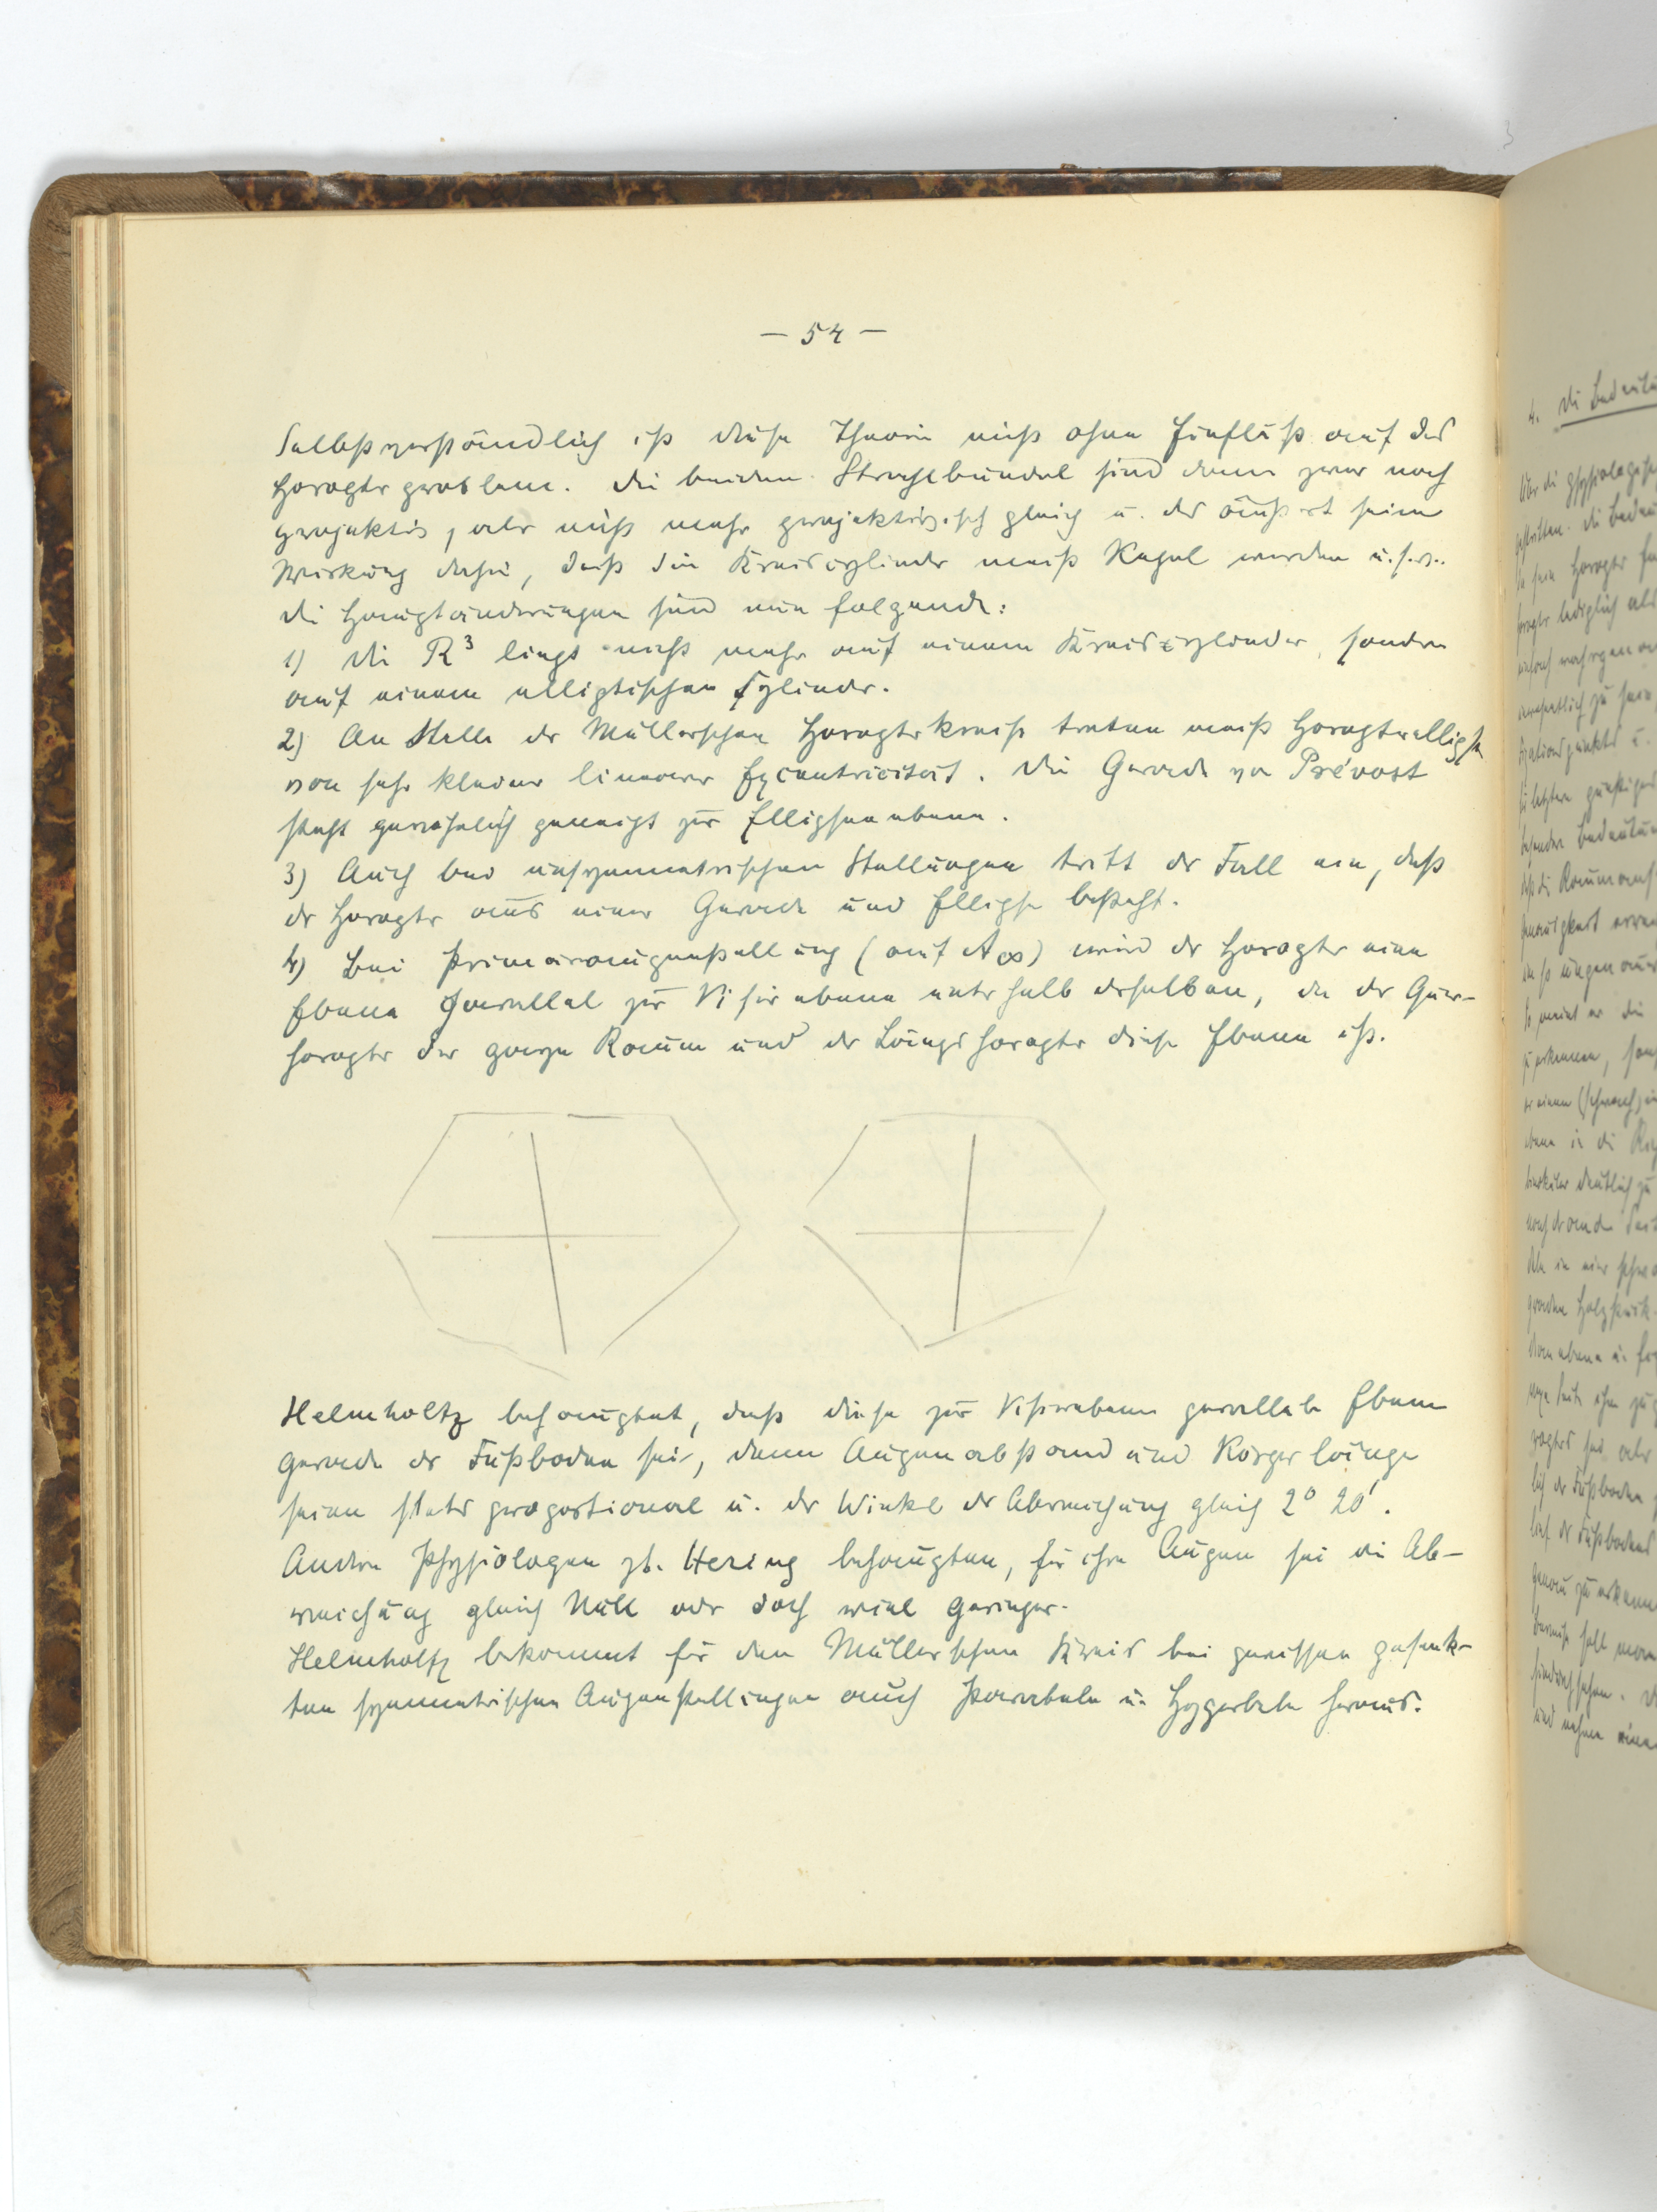 — 54 —
Selbstverständlich ist diese Theorie nicht ohne Einfluß auf das
Horopterproblem. Die beiden Strahlbündel sind dann zwar noch
projektiv, aber nicht mehr projektivisch gleich u. das äußert seine
Wirkung dahin, daß die Kreiscylinder meist Kegel werden u.s.w.
Die Hauptänderungen sind nun folgende:
1) Die R³ liegt nicht mehr auf einem Kreiscylinder, sondern
auf einem elliptischen Cylinder.
2) An Stelle der Müllerschen Horopterkreise treten meist Horopterellipsen
von sehr kleiner linearer Excentricität. Die Gerade von Prévost
steht gewöhnlich geneigt zur Ellipsenebene.
3) Auch bei unsymmetrischen Stellungen tritt der Fall ein, daß
der Horopter aus einer Gerade und Ellipse besteht.
4) Bei Primäraugenstellung (auf A∞) wird der Horopter eine
Ebene parallel zur Visirebene unterhalb derselben, da der Quer-
horopter der ganze Raum und der Längshoropter diese Ebene ist.
Helmholtz behauptet, daß diese zur Visirebene parallele Ebene
gerade der Fußboden sei, denn Augenabstand und Körperlänge
seien stets proportional u. der Winkel der Abweichung gleich 2° 20'.
Andere Physiologen zb. Hering behaupten, für ihre Augen sei die Ab-
weichung gleich Null oder doch viel geringer.
Helmholtz bekommt für den Müllerschen Kreis bei gewissen gesenk-
ten symmetrischen Augenstellungen auch Parabeln u. Hyperbeln heraus.
4. Die Bedeutu
Über die physiologisch